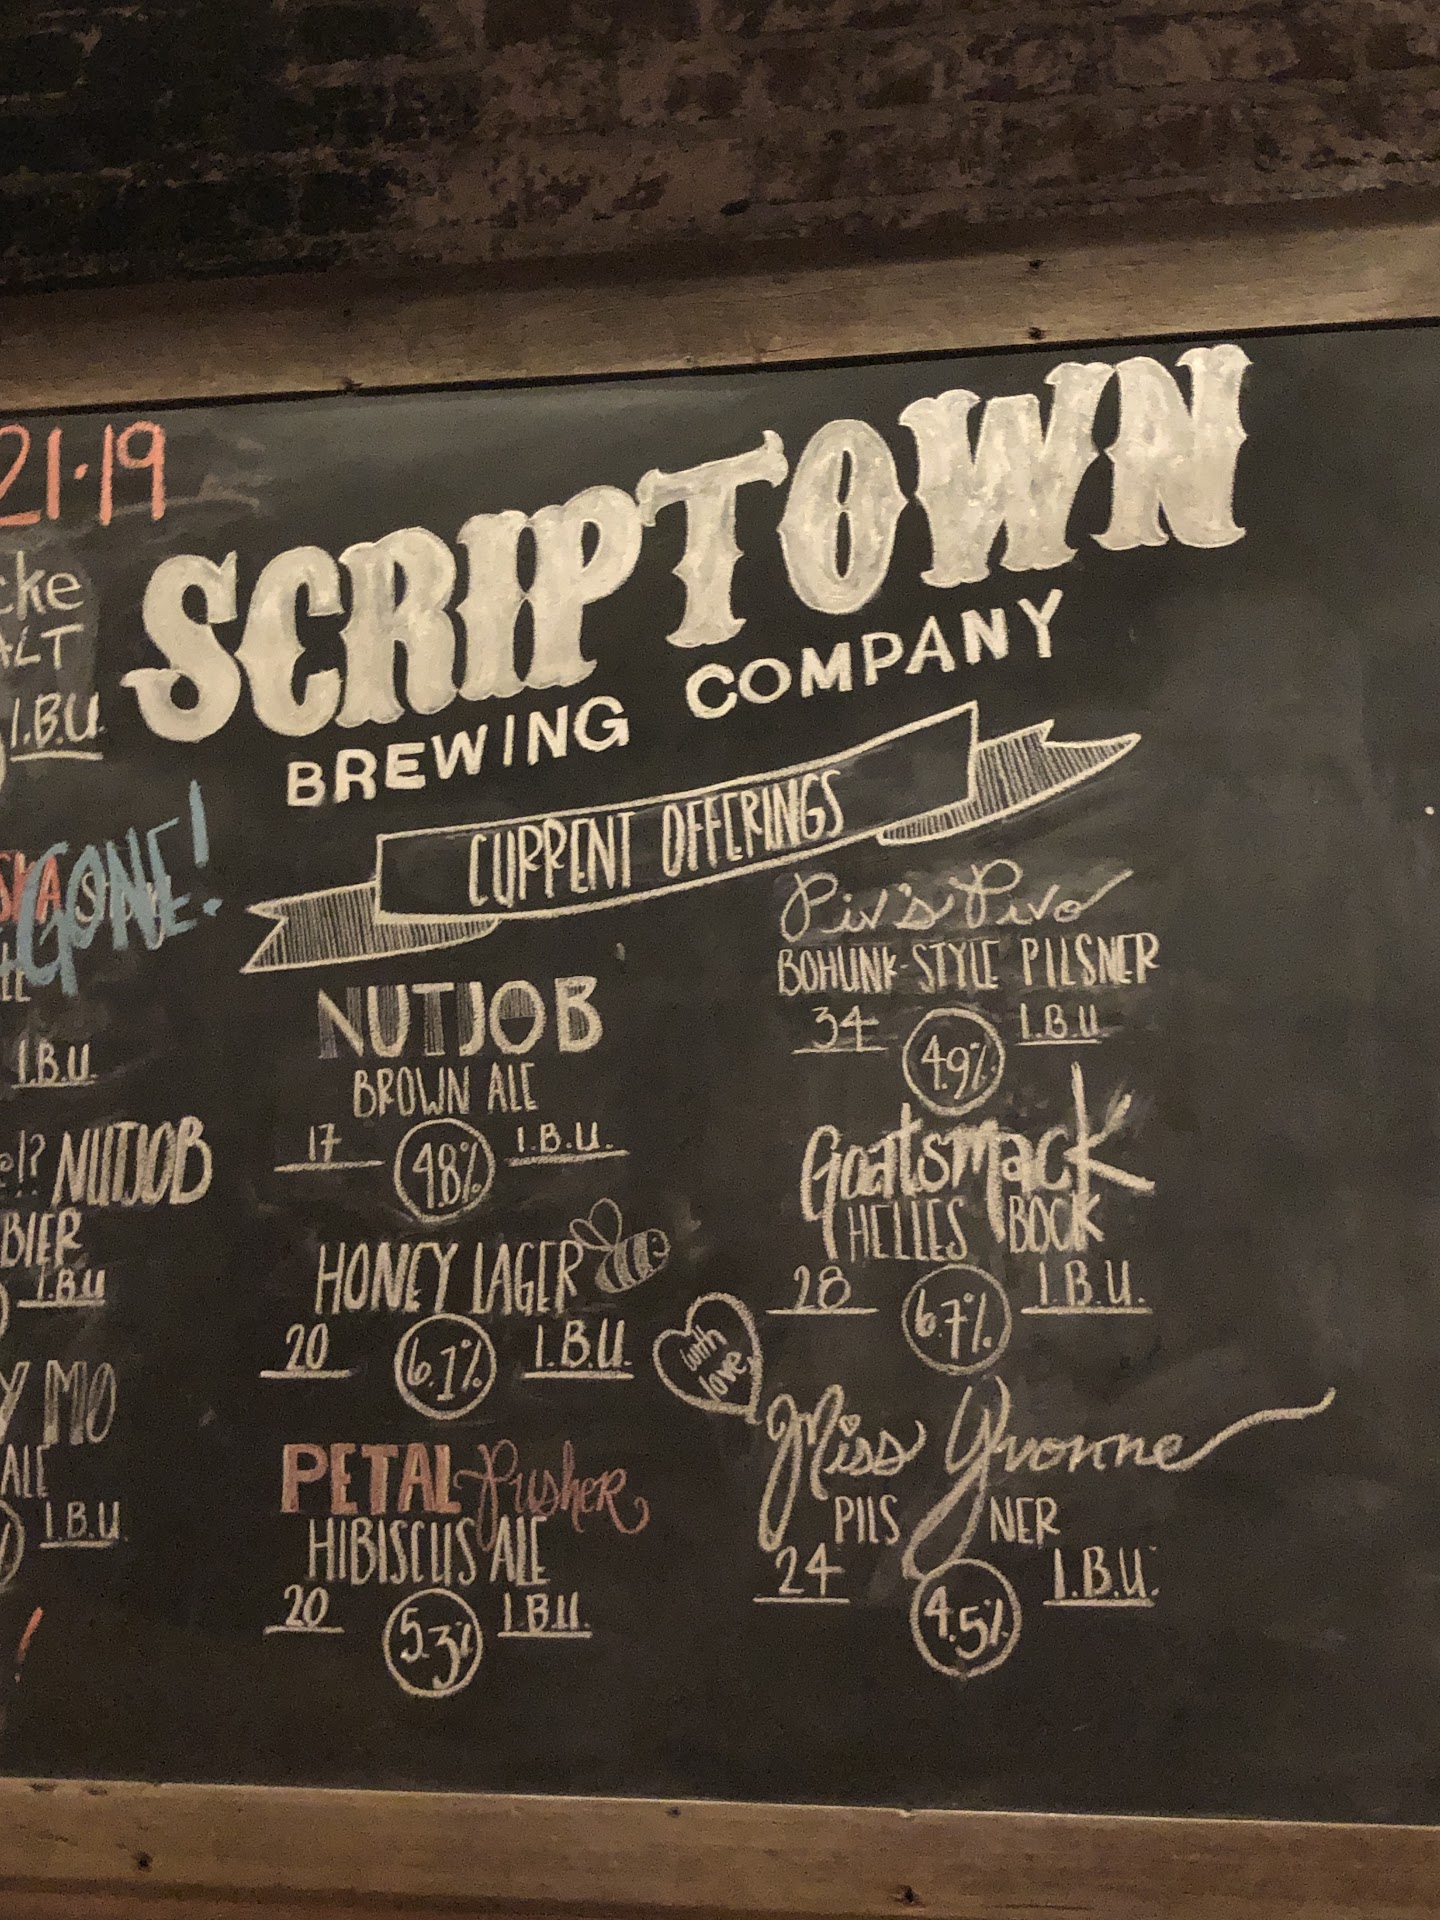 21·19
ALT
I.B.U.
GONE!
I.B.U.
!? NUTJOB
BIER
I.B.U
Y MO
ALE
I.B.U.
!
SCRIPTOWN
BREWING COMPANY
CURRENT OFFERINGS
NUTJOB
BROWN ALE
17 4.8% I.B.U.
HONEY LAGER
20 6.1% I.B.U.
PETAL Pusher
HIBISCUS ALE
20 5.3% I.B.U.
Piv's Pivo
BOHUNK-STYLE PILSNER
34 4.9% I.B.U
Goatsmack
HELLES BOCK
28 6.7% I.B.U.
with
love
Miss Yvonne
PILSNER
24 4.5% I.B.U.